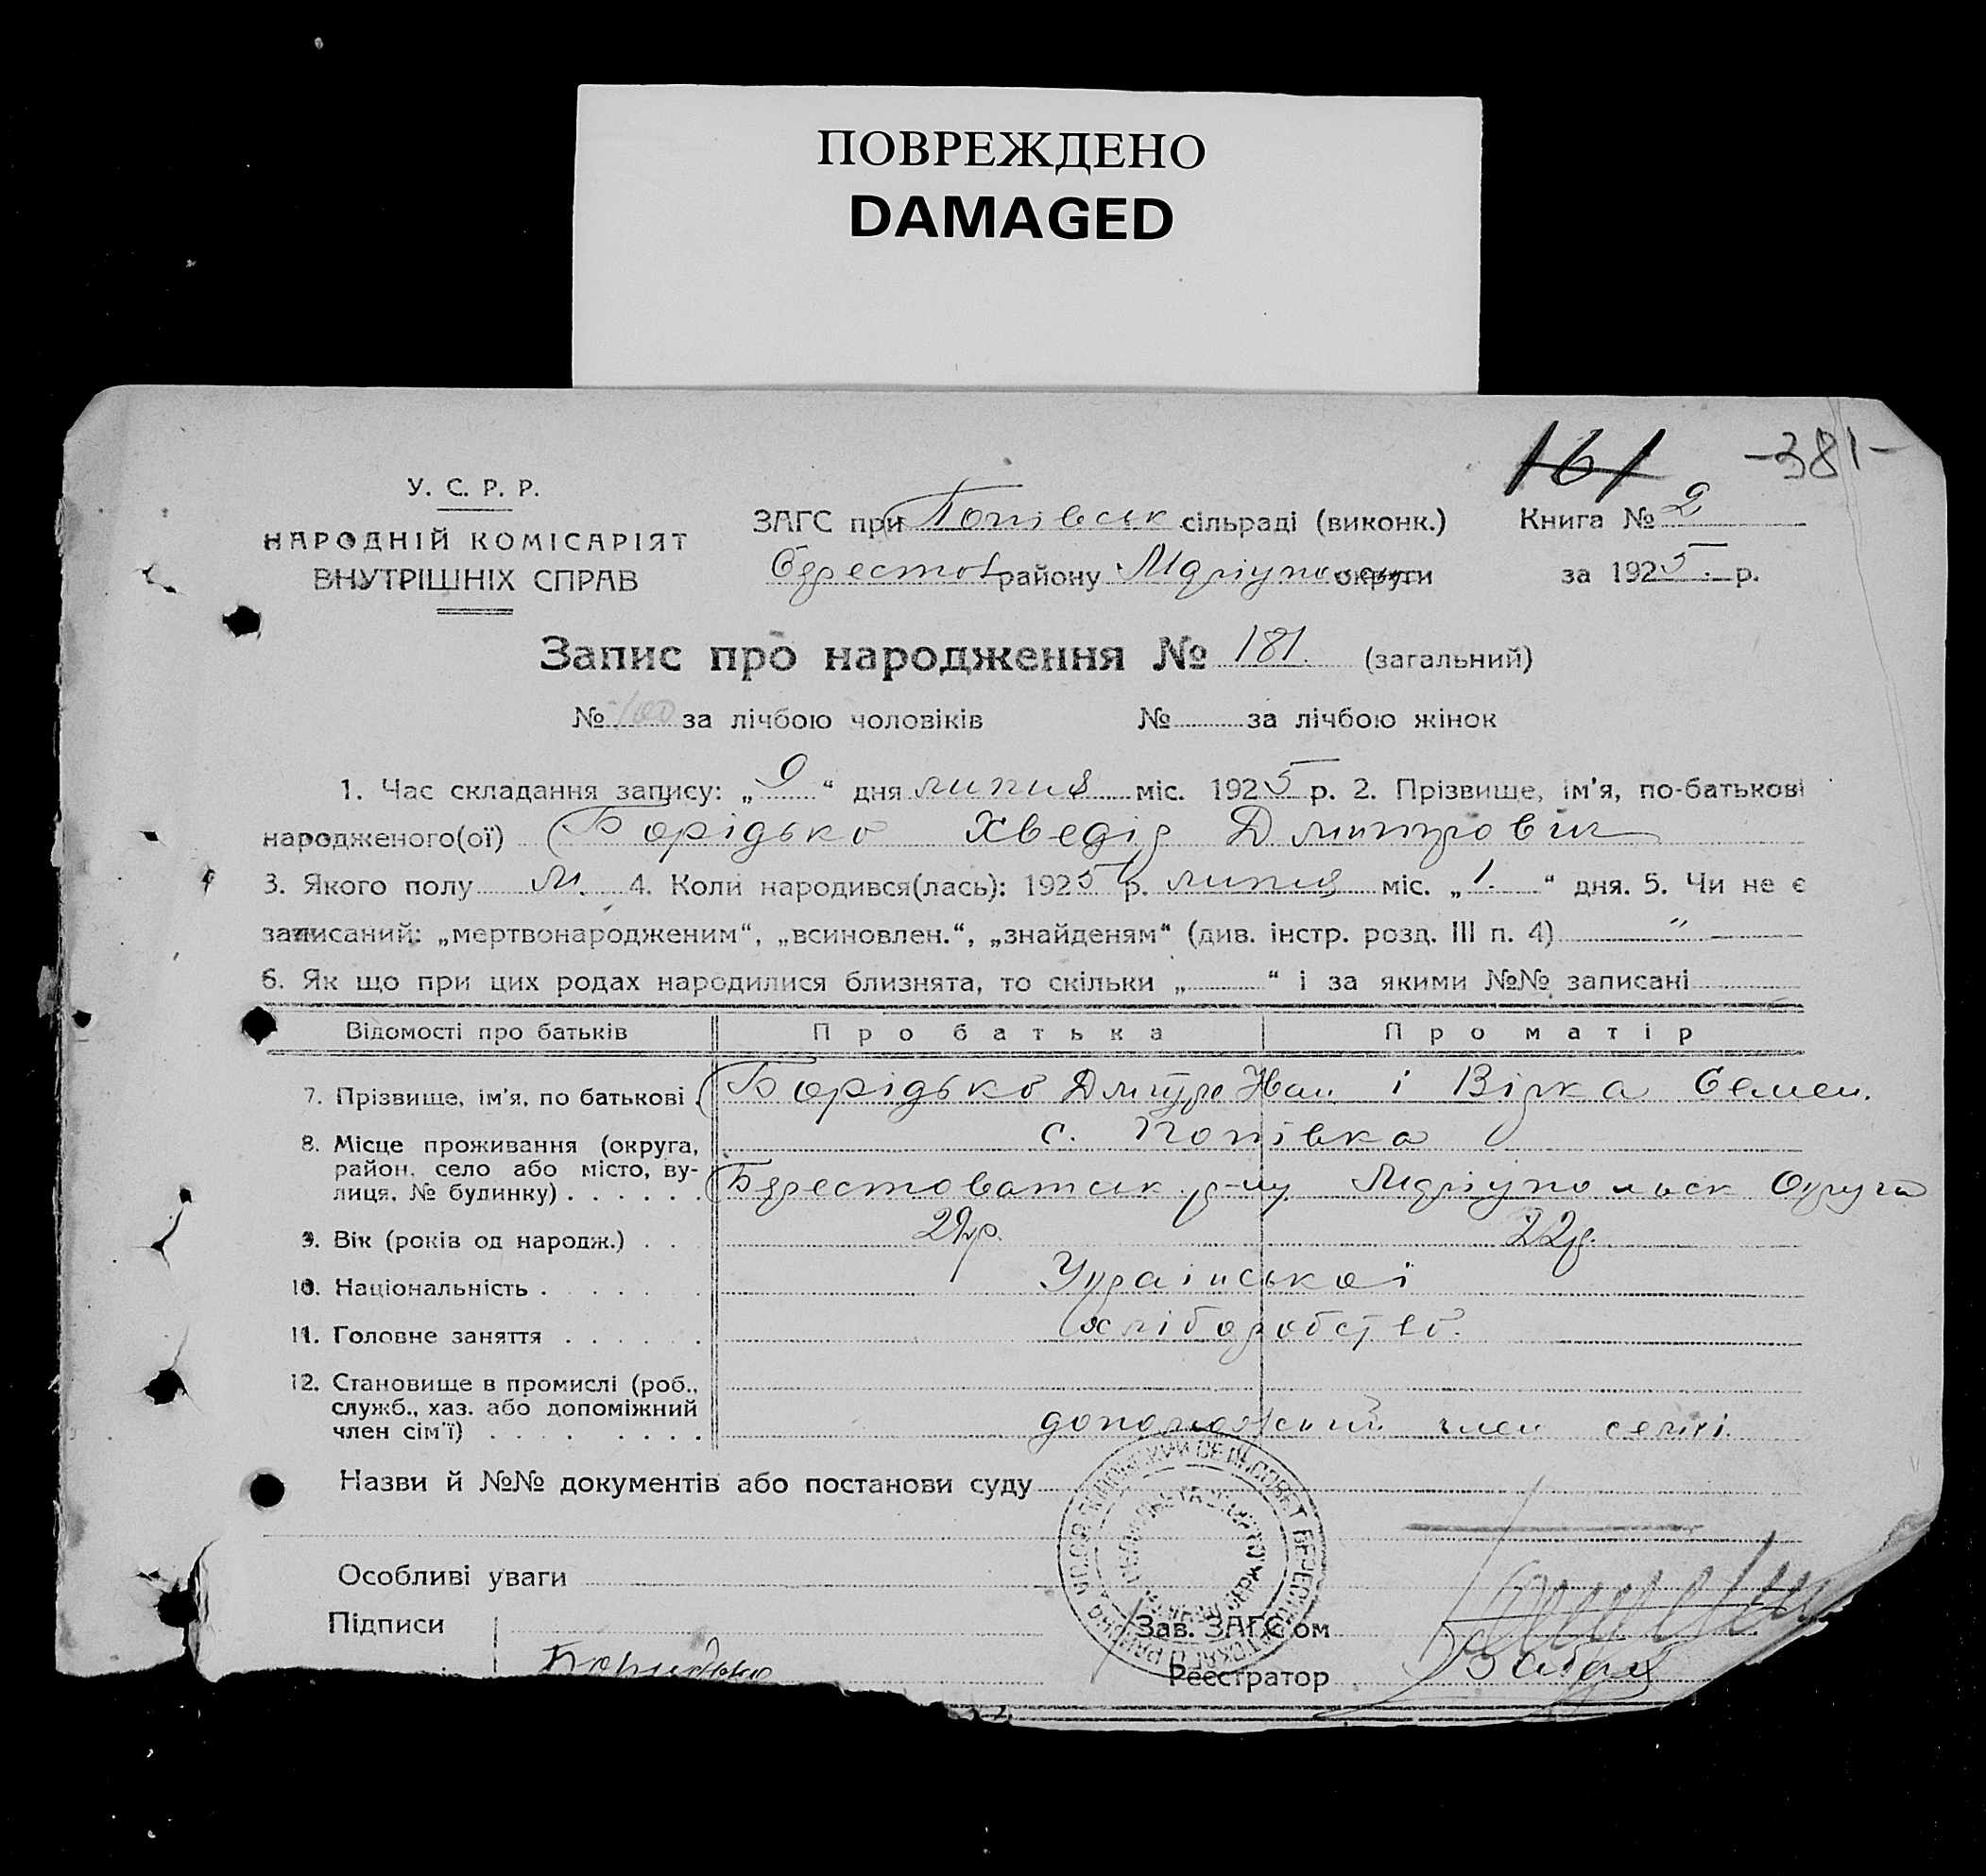 ПОВРЕЖДЕНО
DAMAGED
161 -381-
У. С. Р. Р.
НАРОДНІЙ КОМІСАРІЯТ
ВНУТРІШНІХ СПРАВ
ЗАГС при Попівськ сільраді (виконк.) Книга № 2
Берестов району Маріупольськ округи за 1925 р.
Запис про народження № 181. (загальний)
№ 100 за лічбою чоловіків № за лічбою жінок
1. Час складання запису: „9“ дня липня міс. 1925 р. 2. Прізвище, ім'я, по-батькові
народженого(ої) Борідько Хведір Дмитрович
3. Якого полу М. 4. Коли народився(лась): 1925 р. липня міс. „1.“ дня. 5. Чи не є
записаний: „мертвонародженим“, „всиновлен.“, „знайденям“ (див. інстр. розд. III п. 4) "
6. Як що при цих родах народилися близнята, то скільки „ “ і за якими №№ записані
Відомості про батьків Про батька Про матір
7. Прізвище, ім'я, по батькові . Борідько Дмитро Іван і Вірка Семен.
8. Місце проживання (округа, с. Попівка
район, село або місто, ву-
лиця, № будинку) . . . . . . Берестоватськ р-ну Маріупольск Округа
9. Вік (років од народж.) . . 22р. 22р.
10. Національність . . . . . Української
11. Головне заняття . . . . . хліборобство.
12. Становище в промислі (роб.,
служб., хаз. або допоміжний
член сім'ї) . . . . . . . . допоможний член семї.
Назви й №№ документів або постанови суду
Особливі уваги
Підписи Зав. ЗАГС'ом
Боридько Реєстратор